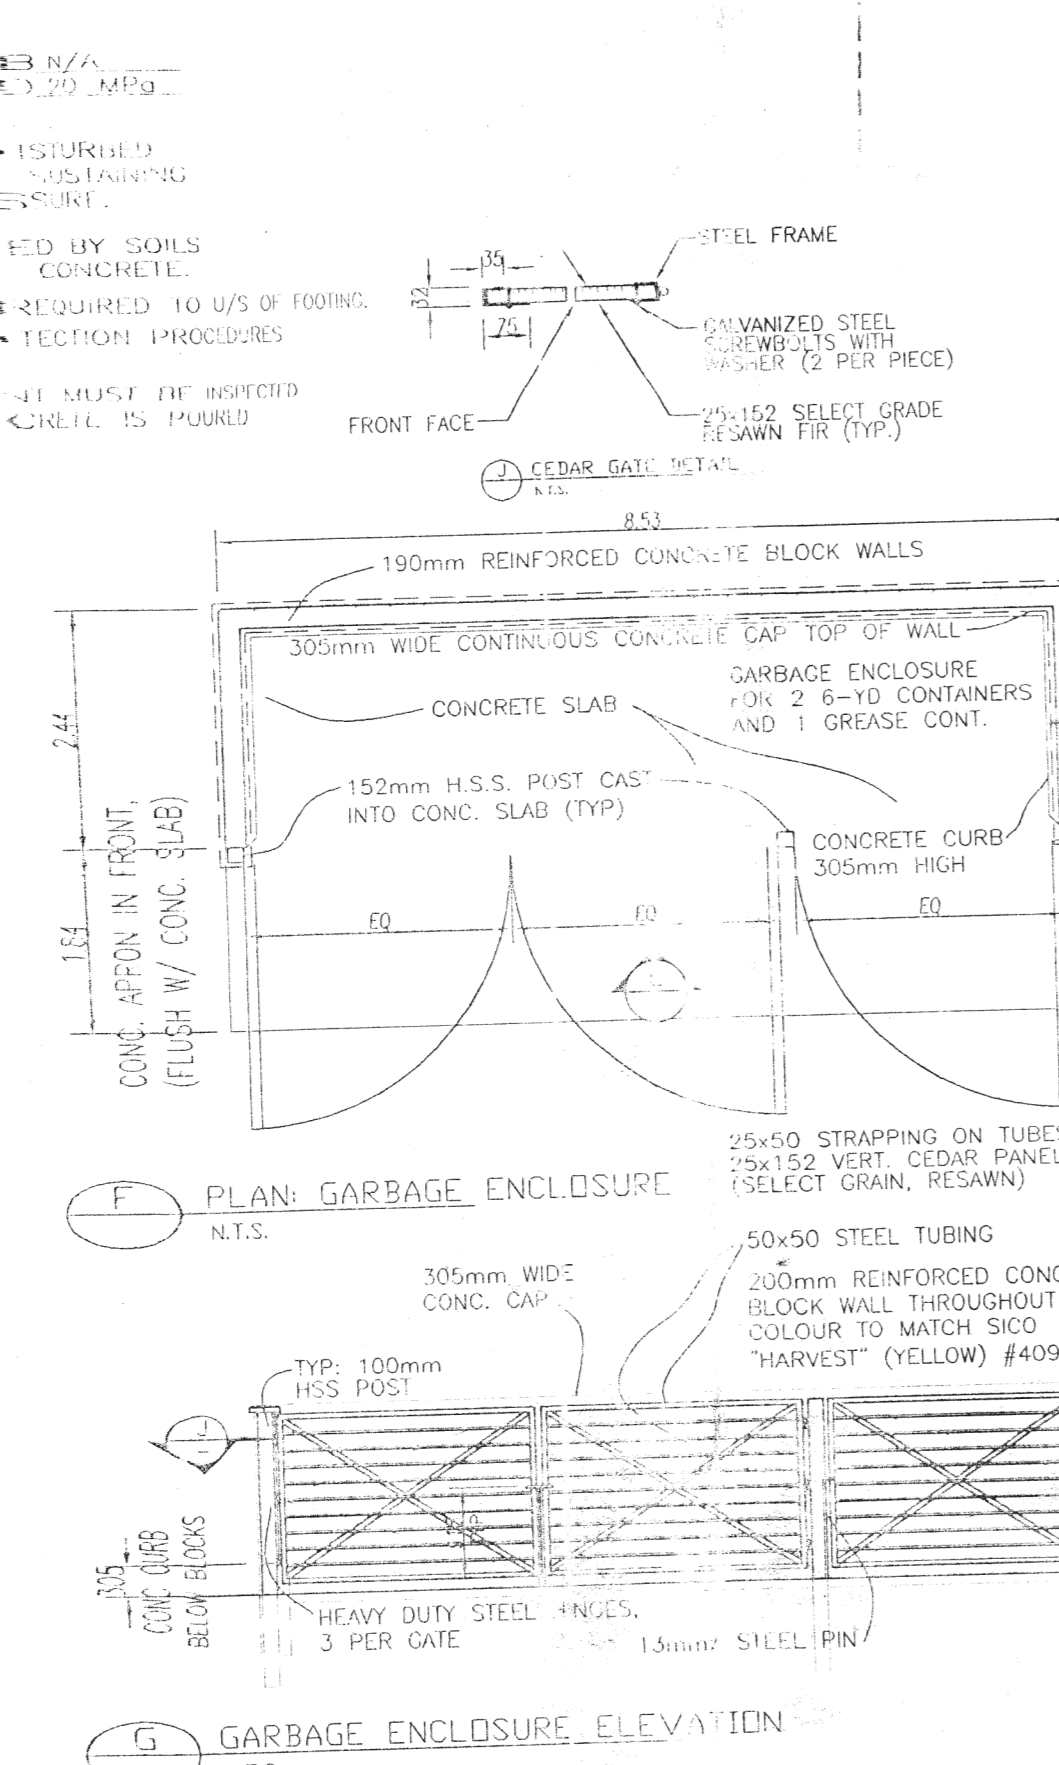 N/A
20 MPa
SURE.
BY SOILS
CONCRETE.
REQUIRED TO U/S OF FOOTING.
PROCEDURES
MUST BE INSPECTED
IS POURED
STEEL FRAME
35
32
75
GALVANIZED STEEL
SCREWBOLTS WITH
WASHER (2 PER PIECE)
FRONT FACE
25x152 SELECT GRADE
RESAWN FIR (TYP.)
J CEDAR GATE DETAIL
N.T.S.
8.53
190mm REINFORCED CONCRETE BLOCK WALLS
305mm WIDE CONTINUOUS CONCRETE CAP TOP OF WALL
GARBAGE ENCLOSURE
FOR 2 6-YD CONTAINERS
AND 1 GREASE CONT.
CONCRETE SLAB
2.44
152mm H.S.S. POST CAST
INTO CONC. SLAB (TYP)
CONCRETE CURB
305mm HIGH
CONC. APPON IN FRONT,
(FLUSH W/ CONC. SLAB)
EQ
EQ
EQ
25x50 STRAPPING ON TUBES
25x152 VERT. CEDAR PANEL
(SELECT GRAIN, RESAWN)
F PLAN: GARBAGE ENCLOSURE
N.T.S.
50x50 STEEL TUBING
305mm WIDE
CONC. CAP
200mm REINFORCED CONC
BLOCK WALL THROUGHOUT
COLOUR TO MATCH SICO
"HARVEST" (YELLOW) #409
TYP: 100mm
HSS POST
305
CONC CURB
BELOW BLOCKS
HEAVY DUTY STEEL
3 PER GATE
STEEL PIN
G GARBAGE ENCLOSURE ELEVATION